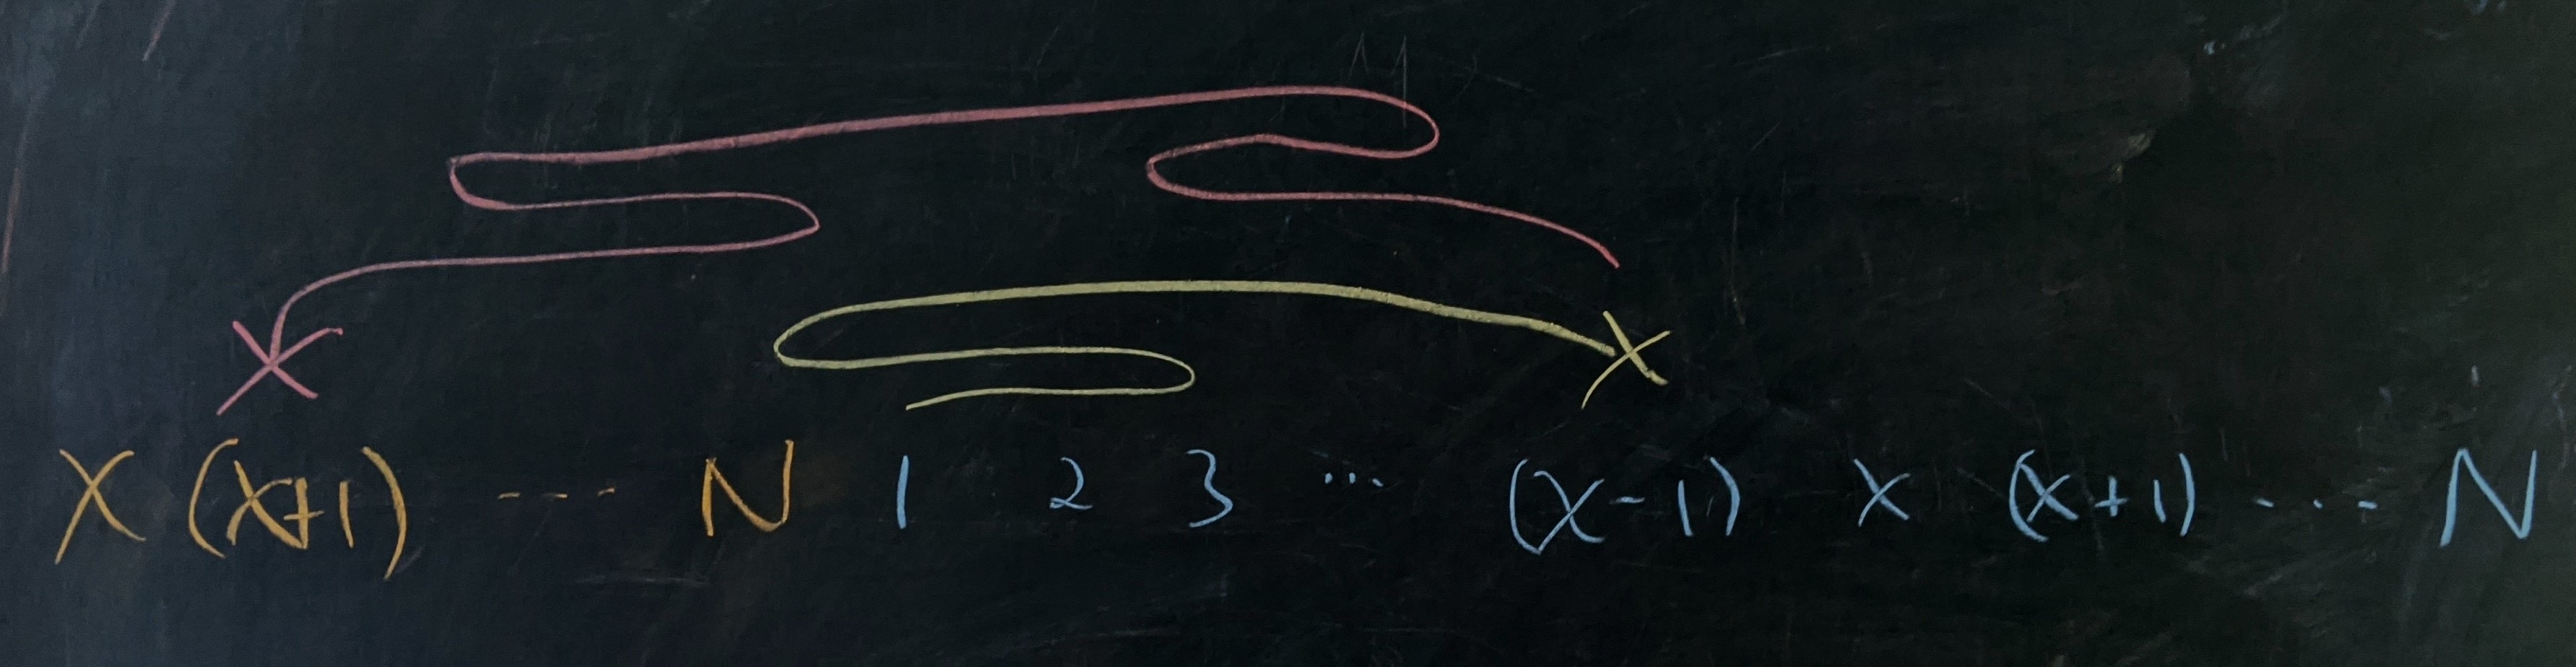 X (X+1) ---- N 1 2 3 ... (X-1) X (X+1) .... N